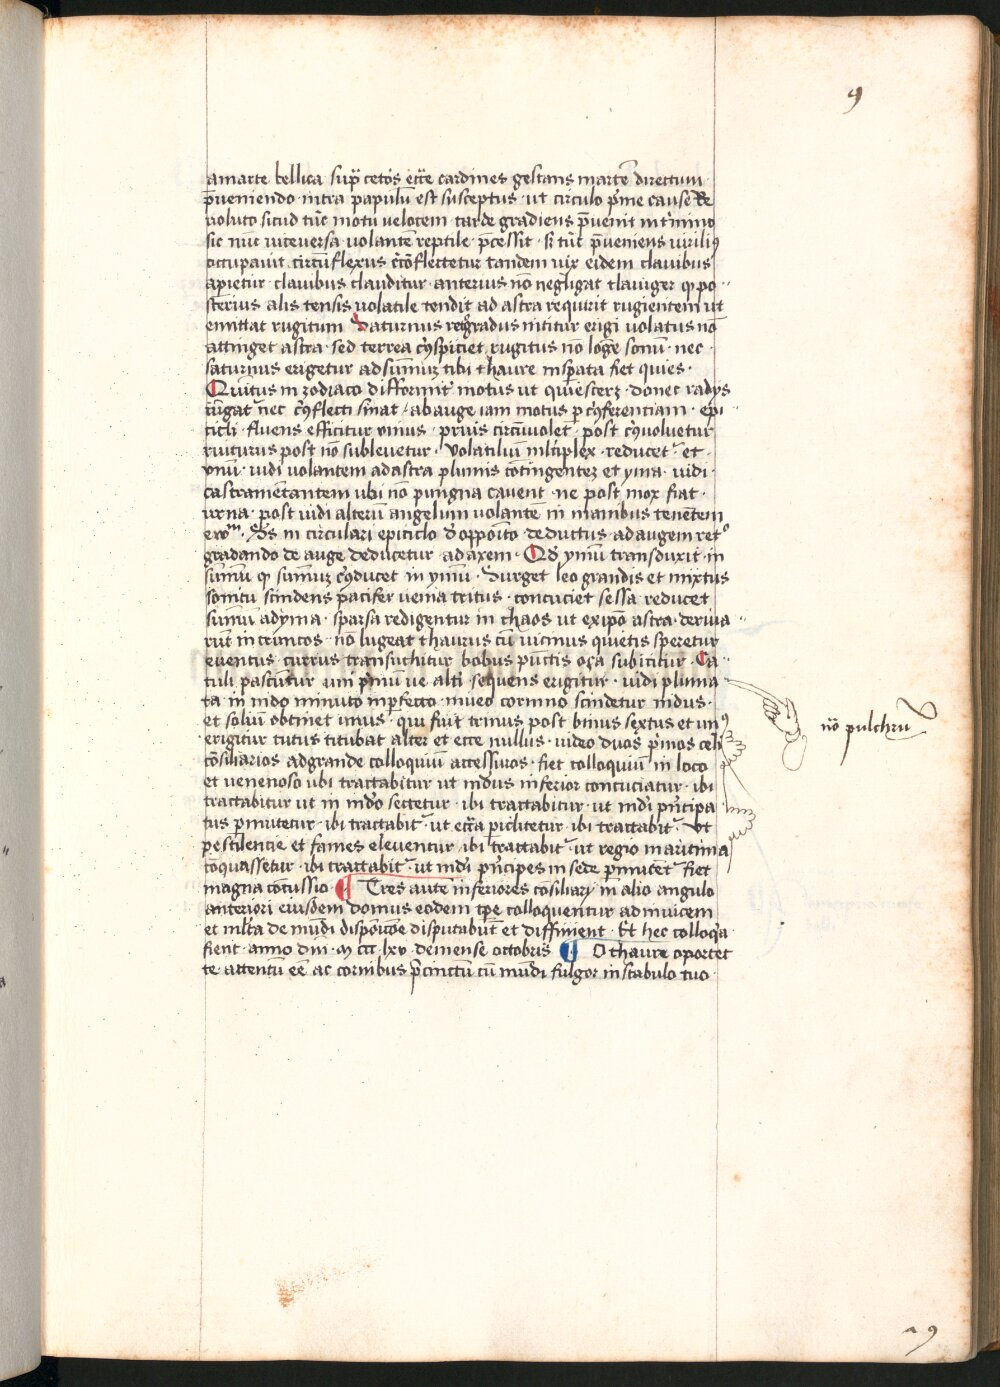 9
amarte bellica sup̄ cetos ecc̄e cardines gestans martē directum
p̄ueniendo intra papulū est susceptus · ut circulo p̄me cause
uoluto sicud tūc motū velocem tarde gradiens p̄uenit in t̄mino
sic nūc uiceversa uolantē reptile p̄cessit · s; tūc p̄ueniens
occupauit circūflexus tandem uix eidem clauibus
apietur · clauibus clauditur · anterius nō negligat clauiger q̄ po
sterius alis tensis uolatile tendit ad astra requirit rugientem ut
emittat rugitum Saturnus ret̄gradus nititur erigi uolatus nō
attinget astra · sed terrea c̄spiciet rugitus nō lōge sonū · nec
saturnus erigetur ad summū tibi thaure insp̄ata fiet quies ·
Quitus in zodiaco difformit̄ motus ut donec radys
nec c̄flecti sinat / ab auge iam motus p c̄ferentiam · epi
ticli · fluens efficitur vnius · prius circūuolet̄ · post c̄uoluetur
ruiturus post nō subleuetur · Volatiliū mltiplex · reducet̄ · et
vnū · uidi uolantem ad astra plumis cōtingentez et yma · uidi ·
castramentantem ubi nō pungna cauent · ne post mox fiat ·
urna · post uidi alterū angelum uolantē in manibus tenētem
in circulari epiticlo d̄ opp̄oito deductus ad augem ret°
gradando de auge deducetur ad axem · Qd̄ ymū transduxit in
sūmū q̄ summūz c̄ducet in ymū · Surget leo grandis et mixtus
sonitu scindens pacifer ueina tritus · concuciet sessa reducet
sūmū ad yma · sparsa redigentur in chaos ut ex ip̄o astra · deriua
rūt in trūncos · nō lugeat thaurus cū uicinus quietis speretur
euentus currus transuehitur bobus pūctis subicitur · Ca
tuli pascūtur uni p̄mū ue alti sequens erigitur · uidi pluma
ta in nido minuto inp̄fecto niueo cornino scindetur nidus ·
et soliū obtinet unus · qui fiūt trinus post binus sextus et un9
erigitur tutus titubat alter et ecce nullus · uideo duos p̄mos celi
cōsiliarios ad grande colloquiū accessuros · fiet colloquiū in loco
et uenenoso ubi tractabitur ut nidus inferior concuciatur · ibi
tractabitur ut in nido sectetur · ibi tractabitur · ut nidi p̄ncipa
tus p̄mutetur · ibi tractabit̄ · ut ecc̄a piclitetur ibi tractabit̄ · Vt
pestilencie et fames eleuentur ibi tractabit̄ ut regio maritima
cōquassetur · ibi tractabit̄ · ut nidi p̄ncipes in sede p̄mutet̄ fiet
magna cōcussio · ¶ Tres autē inferiores cōsiliarÿ in alio angulo
anteriori eiusdem domus eodem tp̄e colloquentur adinuicem
et mlta de mūdi dispoicōe disputabūt et diffinient · Et hec colloq̄a
fient anno dnī · m ccc lxv · de mense octobris ¶ O thaure oportet
te attentū eē ac cornibus p̄cinctū cū mūdi fulgor in stabulo tuo
nō pulchrū
9